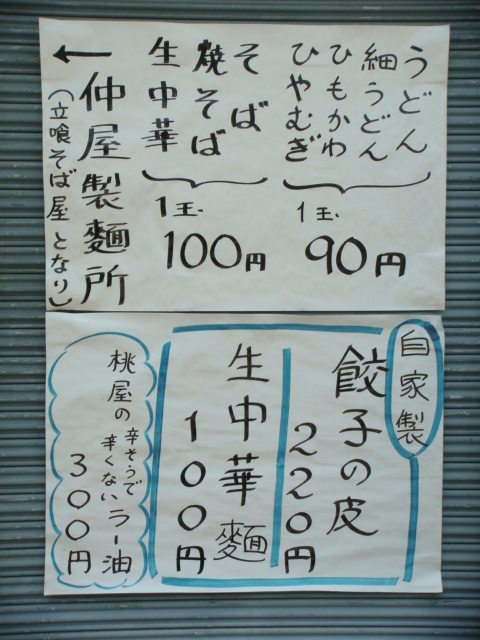 うどん
細うどん
ひもかわ
ひやむぎ
1玉.
90円
そば
焼そば
生中華
1玉.
100円
←
仲屋製麺所
(立喰そば屋となり)
自家製
餃子の皮
220円
生中華麺
100円
桃屋の
辛そうで
辛くない
ラー油
300円